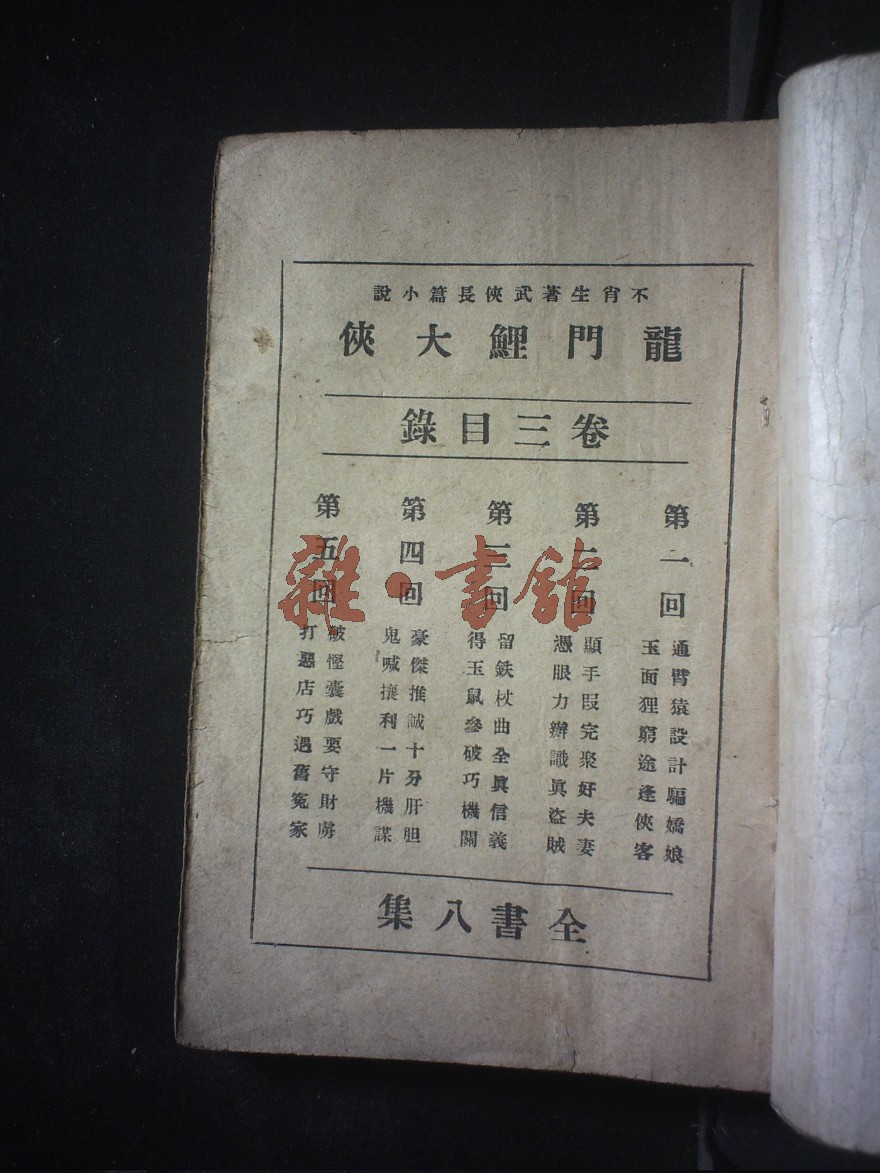 不肖生著武俠長篇小說
龍門鯉大俠
卷三目錄
第一回
通臂猿設計騙嬌娘
玉面狸窮途逢俠客
第二回
顯手段完聚好夫妻
憑眼力辦識眞盜賊
第三回
留鉄杖曲全眞信義
得玉鼠參破巧機關
第四回
豪傑推誠十分肝胆
鬼喊攘利一片機謀
第五回
破慳囊戲耍守財虜
打惡店巧遇舊冤家
全書八集
雜·書館